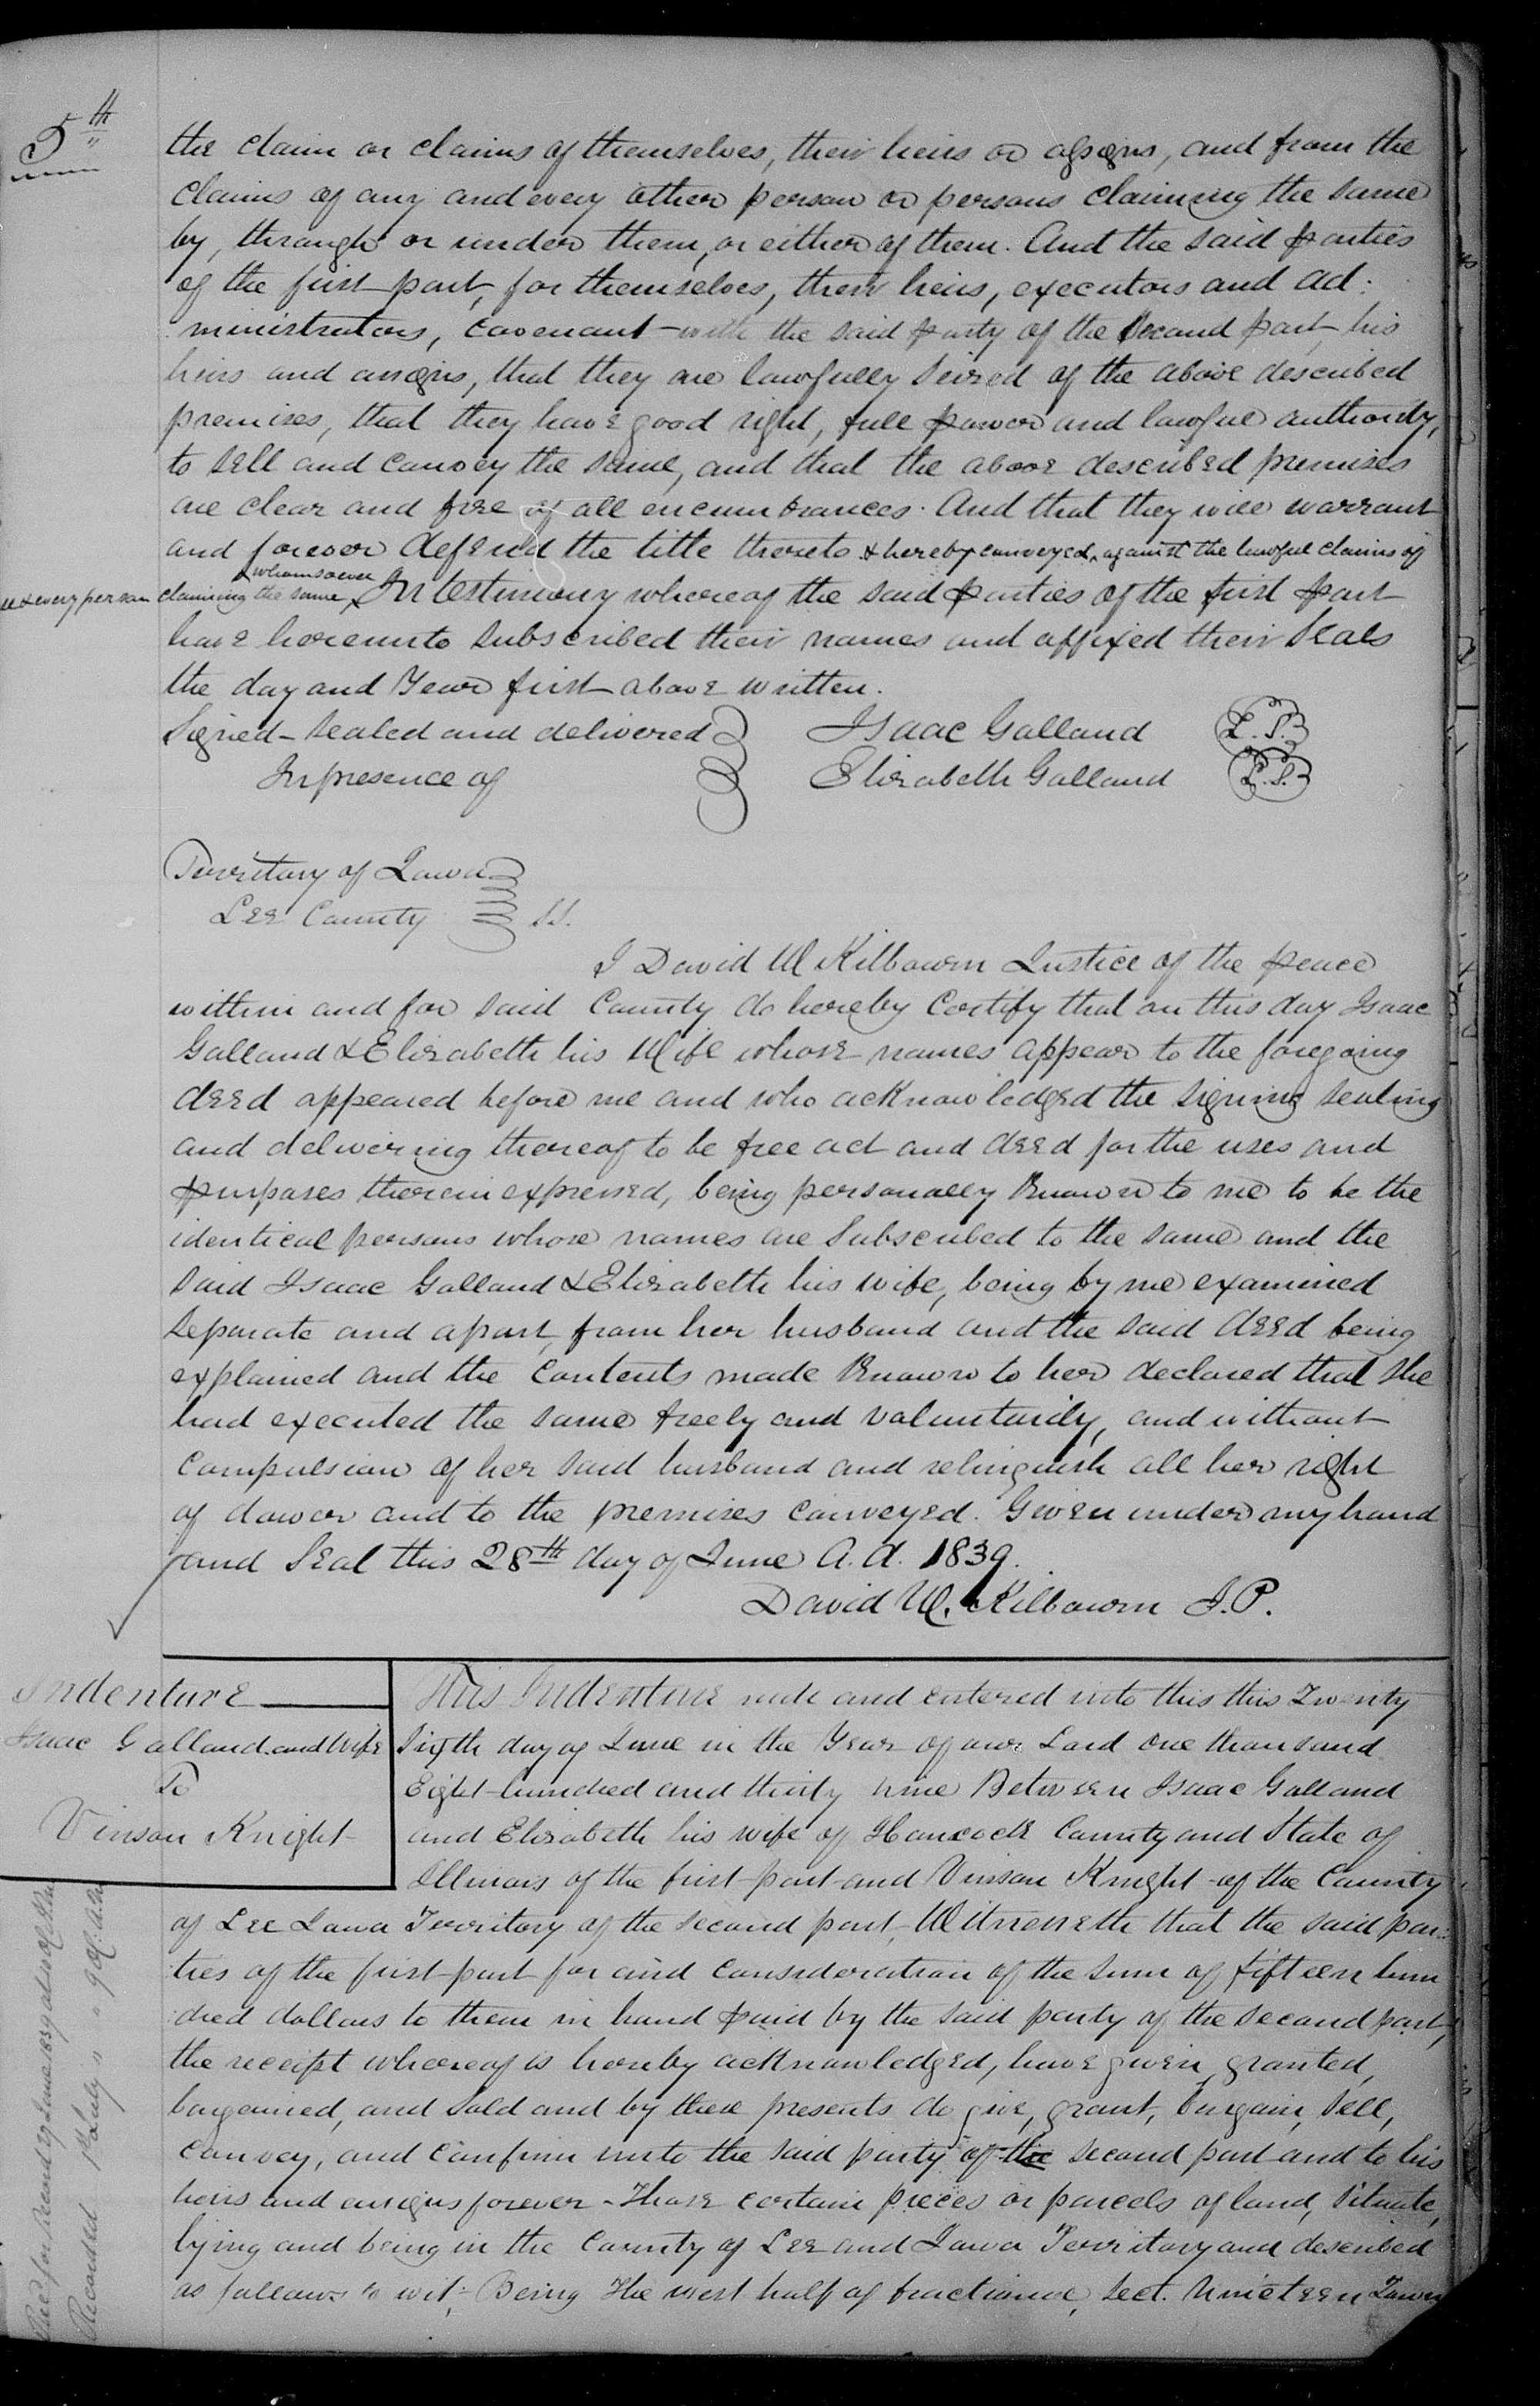 5th
the claim or claims of themselves, their heirs or assigns, and from the
claims of any and every other person or persons claiming the same
by, through or under them, or either of them. And the said parties
of the first part, for themselves, their heirs, executors and ad:
ministrators, covenant with the said party of the second part, his
heirs and assigns, that they are lawfully seized of the above described
premises, that they have good right, full power and lawful authority,
to sell and convey the same, and that the above described premises
are clear and free of all encumbrances. And that they will warrant
and forever defend the title thereto & hereby conveyed, against the lawful claims of
whomsoever
every person claiming the same, In testimony whereof the said parties of the first part
have hereunto subscribed their names and affixed their seals
the day and Year first above written.
Signed - sealed and delivered Isaac Galland L.S.
In presence of Elizabeth Galland L.S.
Territory of Iowa
Lee County SS.
I David W Kilbourn Justice of the peace
within and for said County do hereby Certify that on this day Isaac
Galland & Elizabeth his Wife whose names appear to the foregoing
deed appeared before me and who acknowledged the signing sealing
and delivering thereof to be free act and deed for the uses and
purposes therein expressed, being personally known to me to be the
identical persons whose names are subscribed to the same and the
said Isaac Galland & Elizabeth his wife, being by me examined
separate and apart, from her husband and the said deed being
explained and the Contents made known to her declared that she
had executed the same freely and voluntarily, and without
compulsion of her said husband and relinquish all her right
of dower and to the premises conveyed. Given under my hand
and Seal this 28th day of June A.d. 1839.
David W. Kilbourn J.P.
Indenture
Isaac Galland and Wife
To
Vinson Knight
This Indenture made and entered into this this Twenty
Sixth day of June in the Year of our Lord one thousand
Eight hundred and thirty nine Between Isaac Galland
and Elizabeth his wife of Hancock County and State of
Illinois of the first part and Vinson Knight of the County
of Lee Iowa Territory of the second part, Witnesseth that the said par:
ties of the first part for and consideration of the sum of fifteen hun
dred dollars to them in hand paid by the said party of the second part,
the receipt whereof is hereby acknowledged, have given, granted,
bargained, and sold and by these presents do give, grant, bargain, sell,
convey, and confirm unto the said party of the second part and to his
heirs and assigns forever - Those certain pieces or parcels of land, situate,
lying and being in the County of Lee and Iowa Territory and described
as follows to wit; Being the west half of fractional, sect. Nineteen Town
Rec'd for Record 29 June 1839
Recorded 1st July " " 9